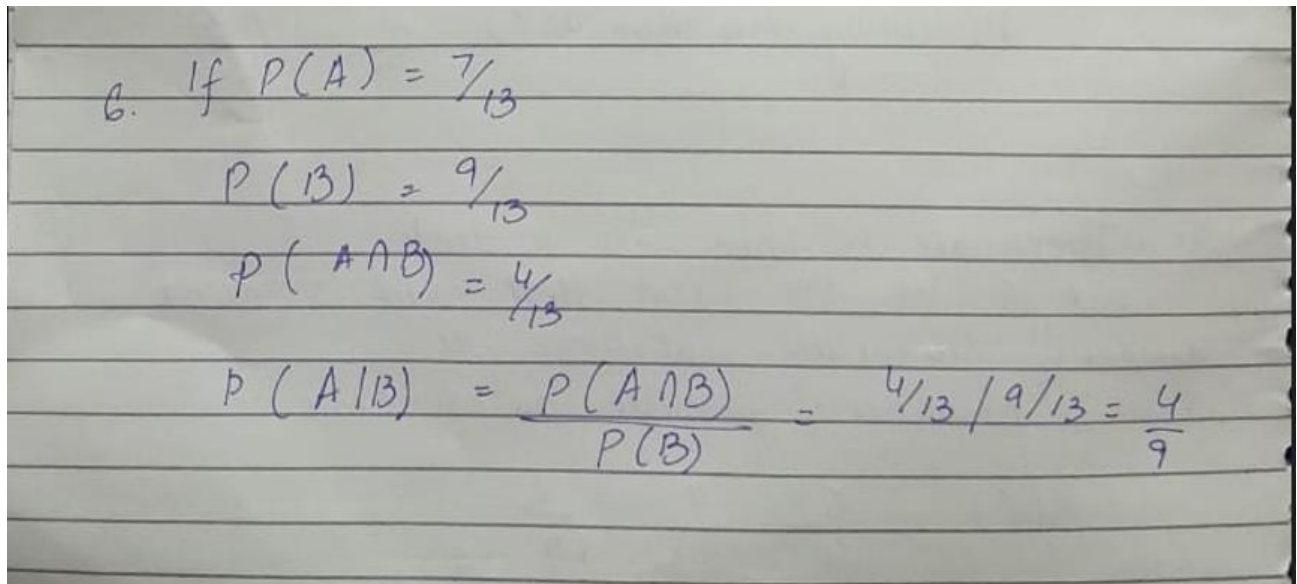 6. If P(A) = 7/13
P(B) = 9/13
P(A∩B) = 4/13
P(A|B) = P(A∩B)/P(B) = 4/13 / 9/13 = 4/9